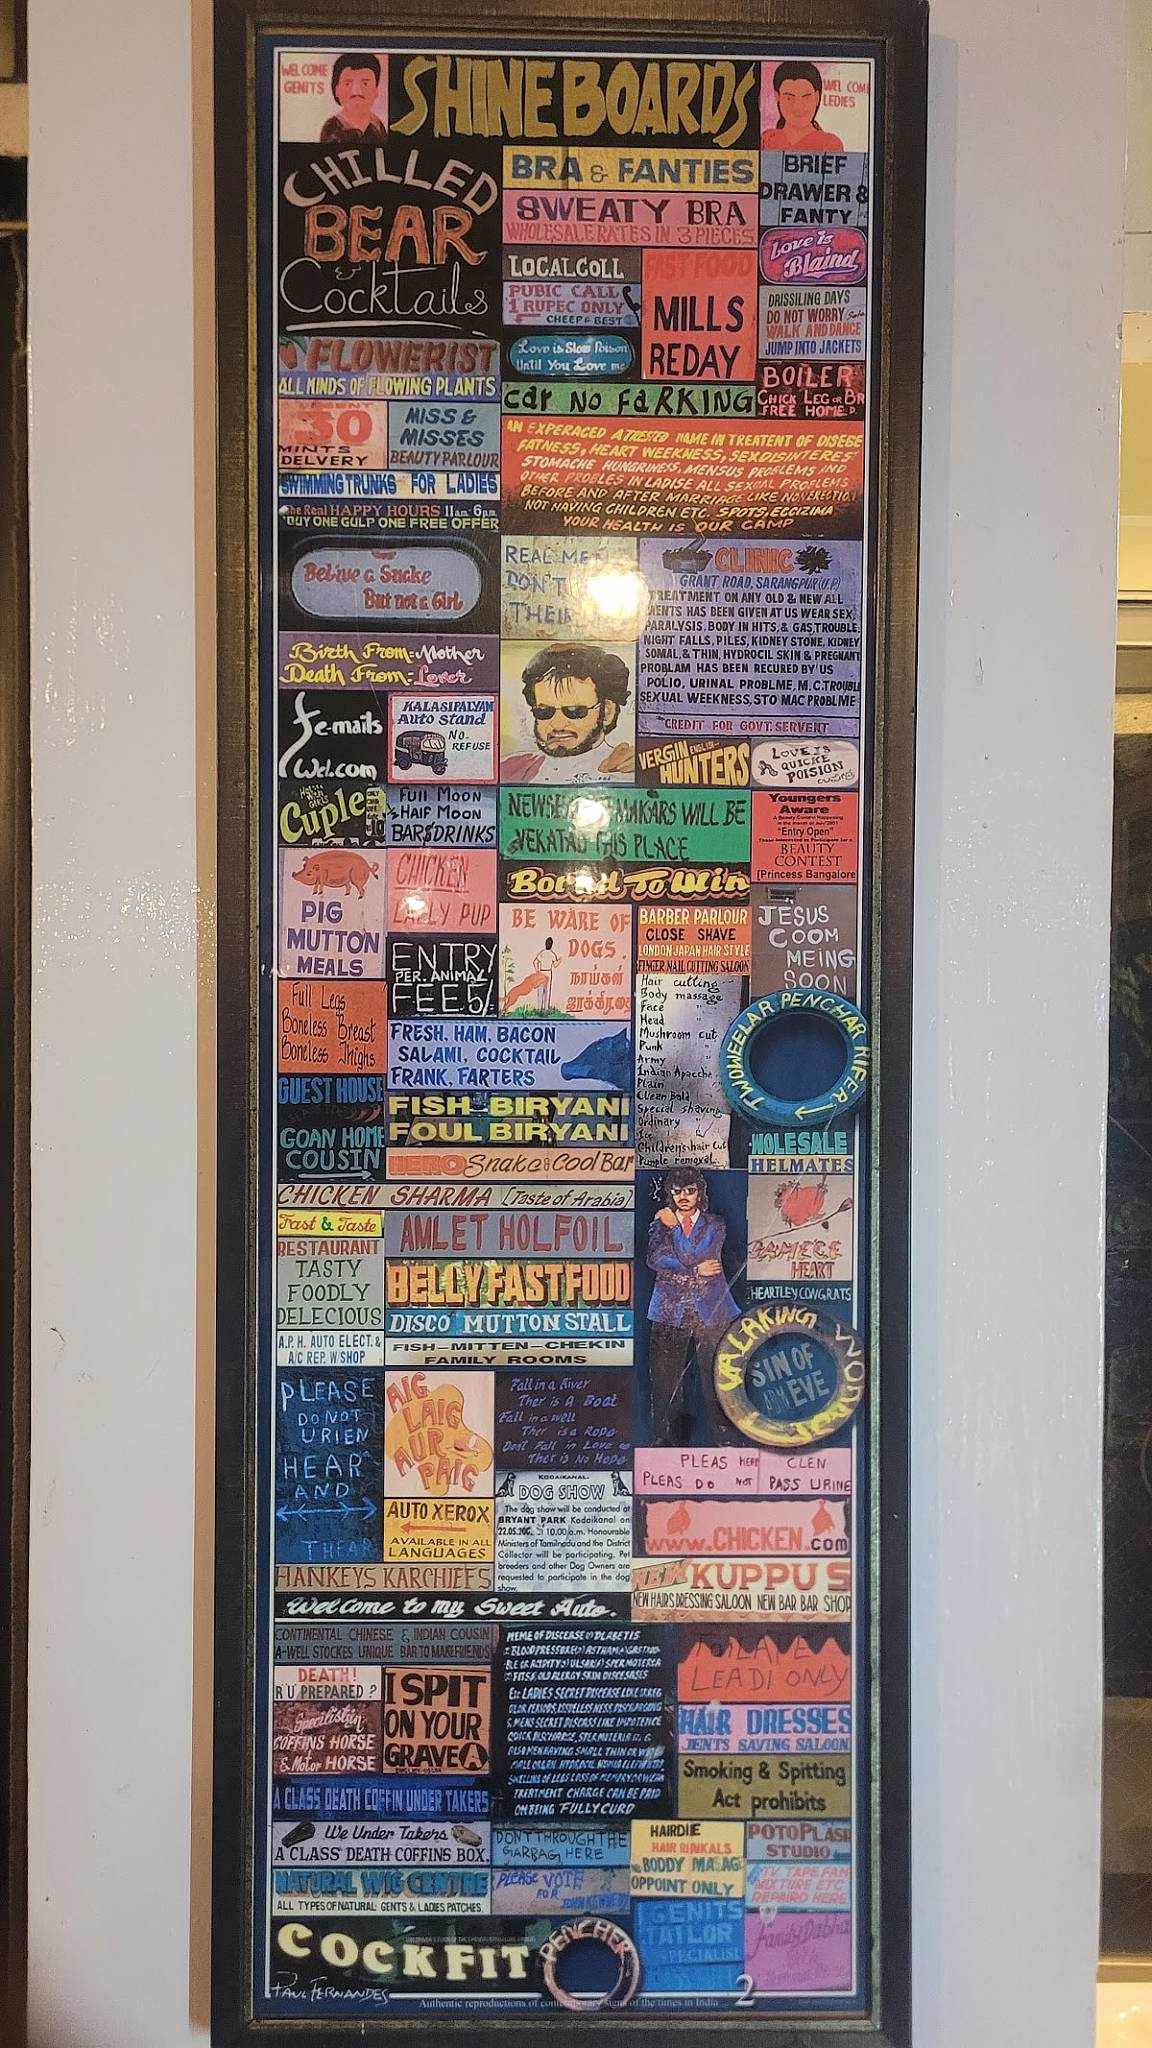 WEL COME
GENITS
SHINEBOARDS
WEL COM
LEDIES
CHILLED
BEAR
&
Cocktails
BRA & FANTIES
SWEATY BRA
WHOLESALE RATES IN 3 PIECES
BRIEF
DRAWER &
FANTY
Love is
Blaind
LOCALCOLL
PUBIC CALL
1 RUPEC ONLY
CHEEP & BEST
FAST FOOD
MILLS
REDAY
Love is Slow Poison
Until You Love me
DRISSILING DAYS
DO NOT WORRY
WALK AND DANCE
JUMP INTO JACKETS
FLOWERIST
ALL KINDS OF FLOWING PLANTS
Car NO FaRKING
BOILER
CHICK LEG OR BR
FREE HOME D
30
MINTS
DELVERY
MISS &
MISSES
BEAUTY PARLOUR
SWIMMING TRUNKS FOR LADIES
The Real HAPPY HOURS 11am-6pm
BUY ONE GULP ONE FREE OFFER
AN EXPERACED A TRESTED NAME IN TREATENT OF DISEBE
FATNESS, HEART WEEKNESS, SEXDISINTEREST
STOMACHE HUNGRINESS, MENSUS PROBLEMS AND
OTHER PROBLES IN LADISE ALL SEXUAL PROFLEMS
BEFORE AND AFTER MARRIAGE LIKE NOVERECTION
NOT HAVING CHILDREN ETC. SPOTS, ECCIZIMA
YOUR HEALTH IS OUR CAMP
Belive a Snake
But not a Girl
REAL ME
DON'T
THEIR
CLINIC
GRANT ROAD, SARANGPUR (U.P)
TREATMENT ON ANY OLD & NEW ALL
MENTS HAS BEEN GIVEN AT US WEAR SEX,
PARALYSIS, BODY IN HITS, & GAS, TROUBLE
NIGHT FALLS, PILES, KIDNEY STONE, KIDNEY
SOMAL, & THIN, HYDROCIL SKIN & PREGNANT
PROBLAM HAS BEEN RECURED BY US
POLIO, URINAL PROBLME, M.C. TROUBL
SEXUAL WEEKNESS, STO MAC PROBLME
CREDIT FOR GOVT. SERVENT
Birth From:-Mother
Death From:-Lover
fe-mails
Wel.com
KALASIPALYAM
Auto stand
NO-
REFUSE
VERGIN ENGLISH
HUNTERS
LOVE IS
A QUICKE
POISION
Cuple
Full Moon
Half Moon
BAR&DRINKS
MAKARS WILL BE
THIS PLACE
Youngers
Aware
"Entry Open"
BEAUTY
CONTEST
[Princess Bangalore
PIG
MUTTON
MEALS
CHICKEN
LALLY PUP
Bound To Win
ENTRY
PER. ANIMAL
FEE 5/-
BE WARE OF
DOGS.
நாய்கள்
BARBER PARLOUR
CLOSE SHAVE
LONDON JAPAN HAIR STYLE
FINGER NAIL CUTTING SALOON
JESUS
COOM
MEING
SOON
Full Legs
Boneless Breast
Boneless Thighs
FRESH, HAM, BACON
SALAMI, COCKTAIL
FRANK, FARTERS
Hair cutting
Body massage
Face "
Head "
Mushroom cut
Punk "
Army "
Indian Apacche
Plain
Clean Bold
Special shaving
Ordinary "
Childrens hair cut
Pimple removal
TWOWEELAR PENCHAR RIFER
GUEST HOUSE
GOAN HOME
COUSIN
FISH BIRYANI
FOUL BIRYANI
HERO Snake & Cool Bar
HOLESALE
HELMATES
CHICKEN SHARMA [Taste of Arabia]
Fast & Taste
RESTAURANT
TASTY
FOODLY
DELECIOUS
AMLET HOLFOIL
BELLY FAST FOOD
DISCO MUTTON STALL
FISH-MITTEN-CHEKIN
FAMILY ROOMS
DAMECE
HEART
HEARTLEY CONGRATS
A.P.H. AUTO ELECT. &
A/C REP. W/SHOP
VALAKING WON
SIN OF
EVE
PLEASE
DO NOT
URIEN
HEAR
AND
THEAR
AIG
LAIG
AUR
PAIG
Fall in a River
Ther is A Boat
Fall in a well
Ther is a Rope
Dont Fall in Love
Ther is No Hope
PLEAS KEEP CLEN
PLEAS DO NOT PASS URINE
AUTO XEROX
AVAILABLE IN ALL
LANGUAGES
KODAIKANAL
DOG SHOW
The dog show will be conducted at
BRYANT PARK Kodaikanal on
10.00 a.m. Honourable
Ministers of Tamilnadu and the District
Collector will be participating. Pet
breeders and other Dog Owners are
requested to participate in the dog
show.
www.CHICKEN.com
HANKEYS KARCHIEFS
NEW KUPPUS
NEW HAIRS DRESSING SALOON NEW BAR BAR SHOP
Wel Come to my Sweet Auto.
CONTINENTAL CHINESE & INDIAN COUSIN
A-WELL STOCKES UNIQUE BAR TO MAKE FRIENDS
DEATH!
R U PREPARED ?
I SPIT
ON YOUR
GRAVE A
Specilist in
COFFINS HORSE
& Motor HORSE
TREATMENT CHARGE CAN BE PAID
ON BEING 'FULLY CURD
LEADI ONLY
HAIR DRESSES
JENTS SAVING SALOON
Smoking & Spitting
Act prohibits
A CLASS DEATH COFFIN UNDER TAKERS
We Under Takers
A CLASS DEATH COFFINS BOX.
DONT THROUGH THE
GARBAG HERE
HAIRDIE
HAIR RINKALS
BODDY MASAG
OPPOINT ONLY
POTO PLASH
STUDIO
NATURAL WIG CENTRE
ALL TYPES OF NATURAL GENTS & LADIES PATCHES
PLEASE VOTE
FOR
JOHN KENNEDY
TV TAPE FAN
MIXTURE ETC
REPAIRD HERE
COCKFIT
PENCHER
GENITS
TAILOR
SPECIALIST
PAUL FERNANDES
Authentic reproductions of contemporary signs of the times in India
2